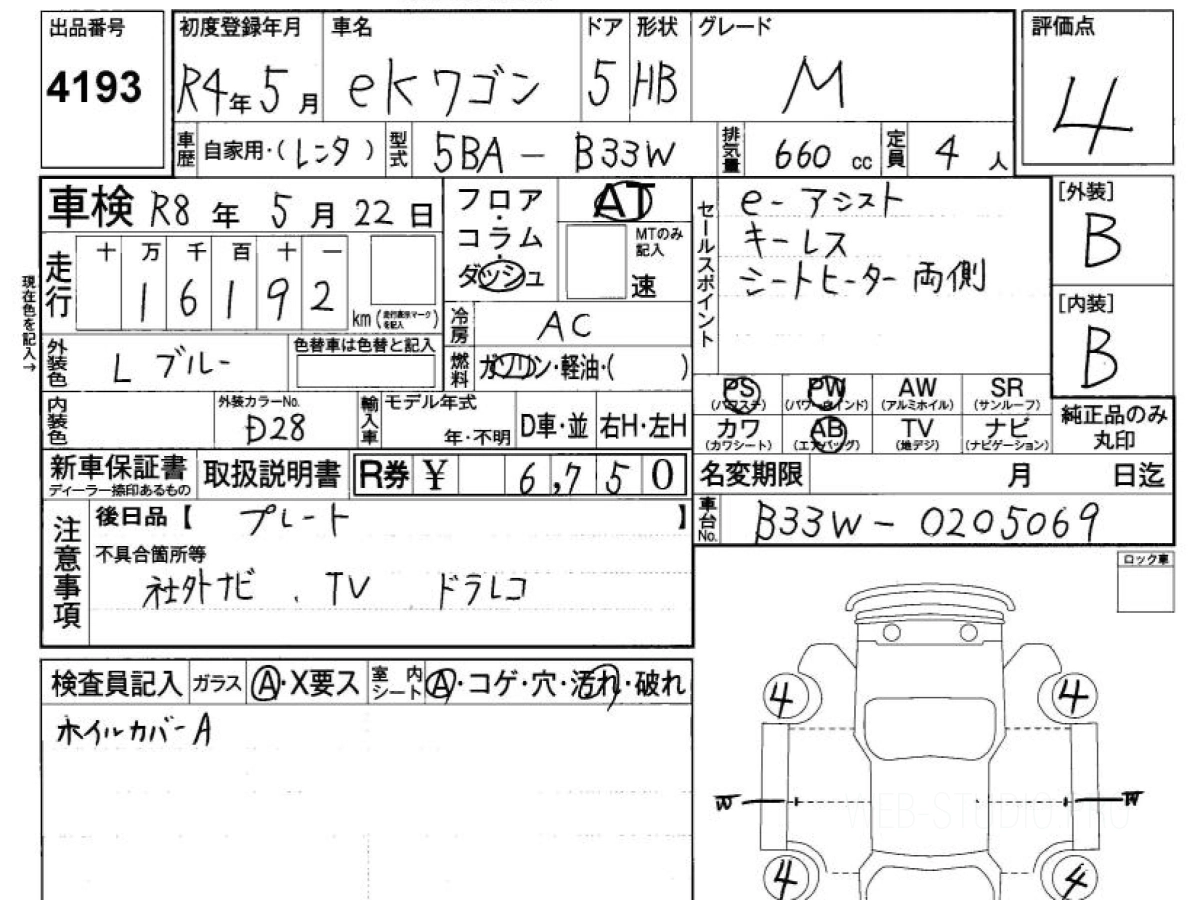 出品番号
4193
初度登録年月 車名 ドア 形状 グレード
R4年5月 ekワゴン 5 HB M
評価点
4
車歴 自家用・(レンタ) 型式 5BA - B33W 排気量 660cc 定員 4人
車検 R8年5月22日
フロア・コラム・ダッシュ
AT
MTのみ記入
速
セールスポイント
e-アシスト
キーレス
シートヒーター両側
[外装]
B
[内装]
B
現在色を記入→
走行 十万千百十一
16192 km(走行表示マークを記入)
冷房 AC
外装色 Lブルー 色替車は色替と記入
燃料 ガソリン・軽油・( )
PS (パワステ) PW (パワーウインド) AW (アルミホイル) SR (サンルーフ)
カワ (カワシート) AB (エアバッグ) TV (地デジ) ナビ (ナビゲーション)
純正品のみ丸印
内装色 外装カラーNo. D28 輸入車 モデル年式 年・不明 D車・並 右H・左H
新車保証書 ディーラー捺印あるもの 取扱説明書 R券 ¥ 6,750
名変期限 月 日迄
車台No. B33W-0205069
注意事項
後日品【 プレート 】
不具合箇所等
社外ナビ . TV ドラレコ
ロック車
検査員記入 ガラス A・X要ス 室内シート A・コゲ・穴・汚れ・破れ
ホイルカバーA
4 4
W W
4 4
WEB-STUDIO.PRO